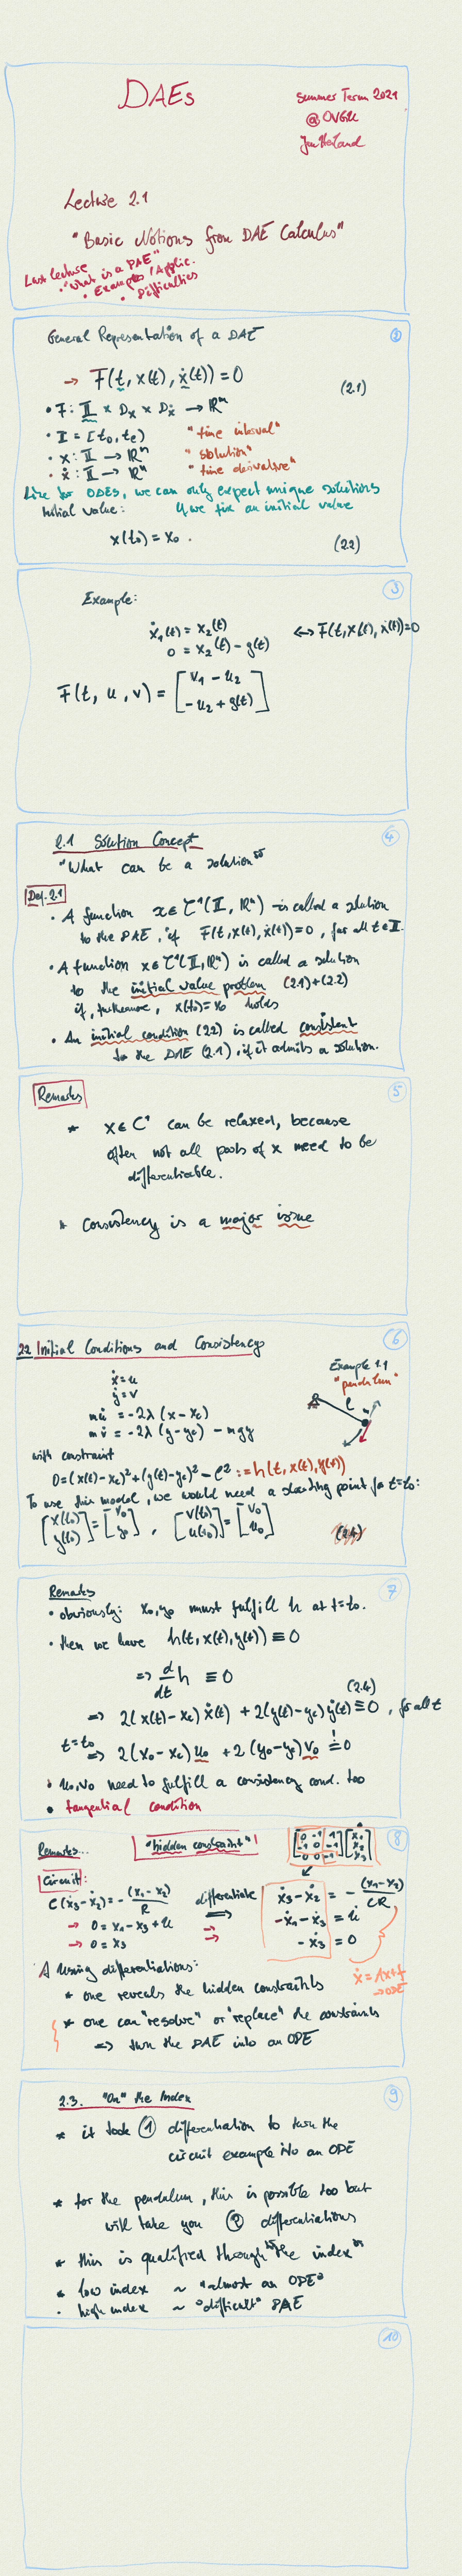 DAEs
Summer Term 2021
@OVGU
Jan Heiland
Lecture 2.1
"Basic Notions from DAE Calculus"
Last lecture
• "What is a DAE"
• Examples / Applic.
• Difficulties
②
General Representation of a DAE
→ F(t, x(t), ẋ(t)) = 0 (2.1)
• F: I × D_x × D_ẋ → ℝⁿ
• I = [t₀, t_e) "time interval"
• x: I → ℝⁿ "solution"
• ẋ: I → ℝⁿ "time derivative"
Like for ODEs, we can only expect unique solutions
Initial value: if we fix an initial value
x(t₀) = x₀ . (2.2)
③
Example:
ẋ₁(t) = x₂(t) ↔ F(t, x(t), ẋ(t)) = 0
0 = x₂(t) - g(t)
F(t, u, v) = [ v₁ - u₂
-u₂ + g(t) ]
④
2.1 Solution Concept
"What can be a solution"
Def. 2.1
• A function x ∈ C¹(I, ℝⁿ) is called a solution
to the DAE, if F(t, x(t), ẋ(t)) = 0, for all t ∈ I.
• A function x ∈ C¹(I, ℝⁿ) is called a solution
to the initial value problem (2.1)+(2.2)
if, furthermore, x(t₀) = x₀ holds
• An initial condition (2.2) is called consistent
to the DAE (2.1), if it admits a solution.
⑤
Remarks
* x ∈ C¹ can be relaxed, because
often not all parts of x need to be
differentiable.
* Consistency is a major issue
⑥
2.2 Initial Conditions and Consistency
ẋ = u
ẏ = v
mu̇ = -2λ(x - x_c)
mv̇ = -2λ(y - y_c) - mgy
Example 1.1
"pendulum"
l
m
with constraint
0 = (x(t) - x_c)² + (y(t) - y_c)² - l² := h(t, x(t), y(t))
To use this model, we would need a starting point for t = t₀:
[x(t₀) y(t₀)] = [ x₀ y₀ ] , [v(t₀) u(t₀)] = [v₀ u₀]
⑦
Remarks
• obviously: x₀, y₀ must fulfill h at t = t₀.
• then we have h(t, x(t), y(t)) ≡ 0
⇒ d/dt h ≡ 0
(2.4)
⇒ 2(x(t) - x_c) ẋ(t) + 2(y(t) - y_c) ẏ(t) ≡ 0, for all t
t = t₀ ⇒ 2(x₀ - x_c) u₀ + 2(y₀ - y_c) v₀ != 0
• u₀, v₀ need to fulfill a consistency cond. too
• tangential condition
⑧
Remarks... "hidden constraint"!
[0 -1 1; -1 0 -1; 0 0 -1] [ẋ₁ ẋ₂ ẋ₃]
Circuit:
C(ẋ₃ - ẋ₂) = -(x₁ - x₂)/R differentiate ⇒ ẋ₃ - ẋ₂ = -(x₁ - x₂)/CR
→ 0 = x₁ - x₃ + u ⇒ -ẋ₁ - ẋ₃ = u̇
→ 0 = x₃ ⇒ -ẋ₃ = 0
ẋ = Ax + f
→ ODE
Using differentiations:
* one reveals the hidden constraints
* one can "resolve" or "replace" the constraints
⇒ turn the DAE into an ODE
⑨
2.3. "On" the Index
* it took ① differentiation to turn the
circuit example into an ODE
* for the pendulum, this is possible too but
will take you ② differentiations
* this is qualified through "the index"
* low index ~ "almost an ODE"
• high index ~ "difficult" DAE
⑩